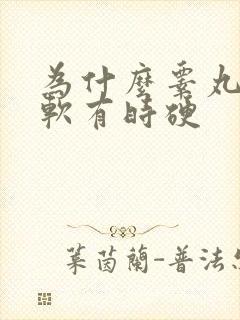 為什麼睾丸
軟有時硬
萊茵蘭-普法